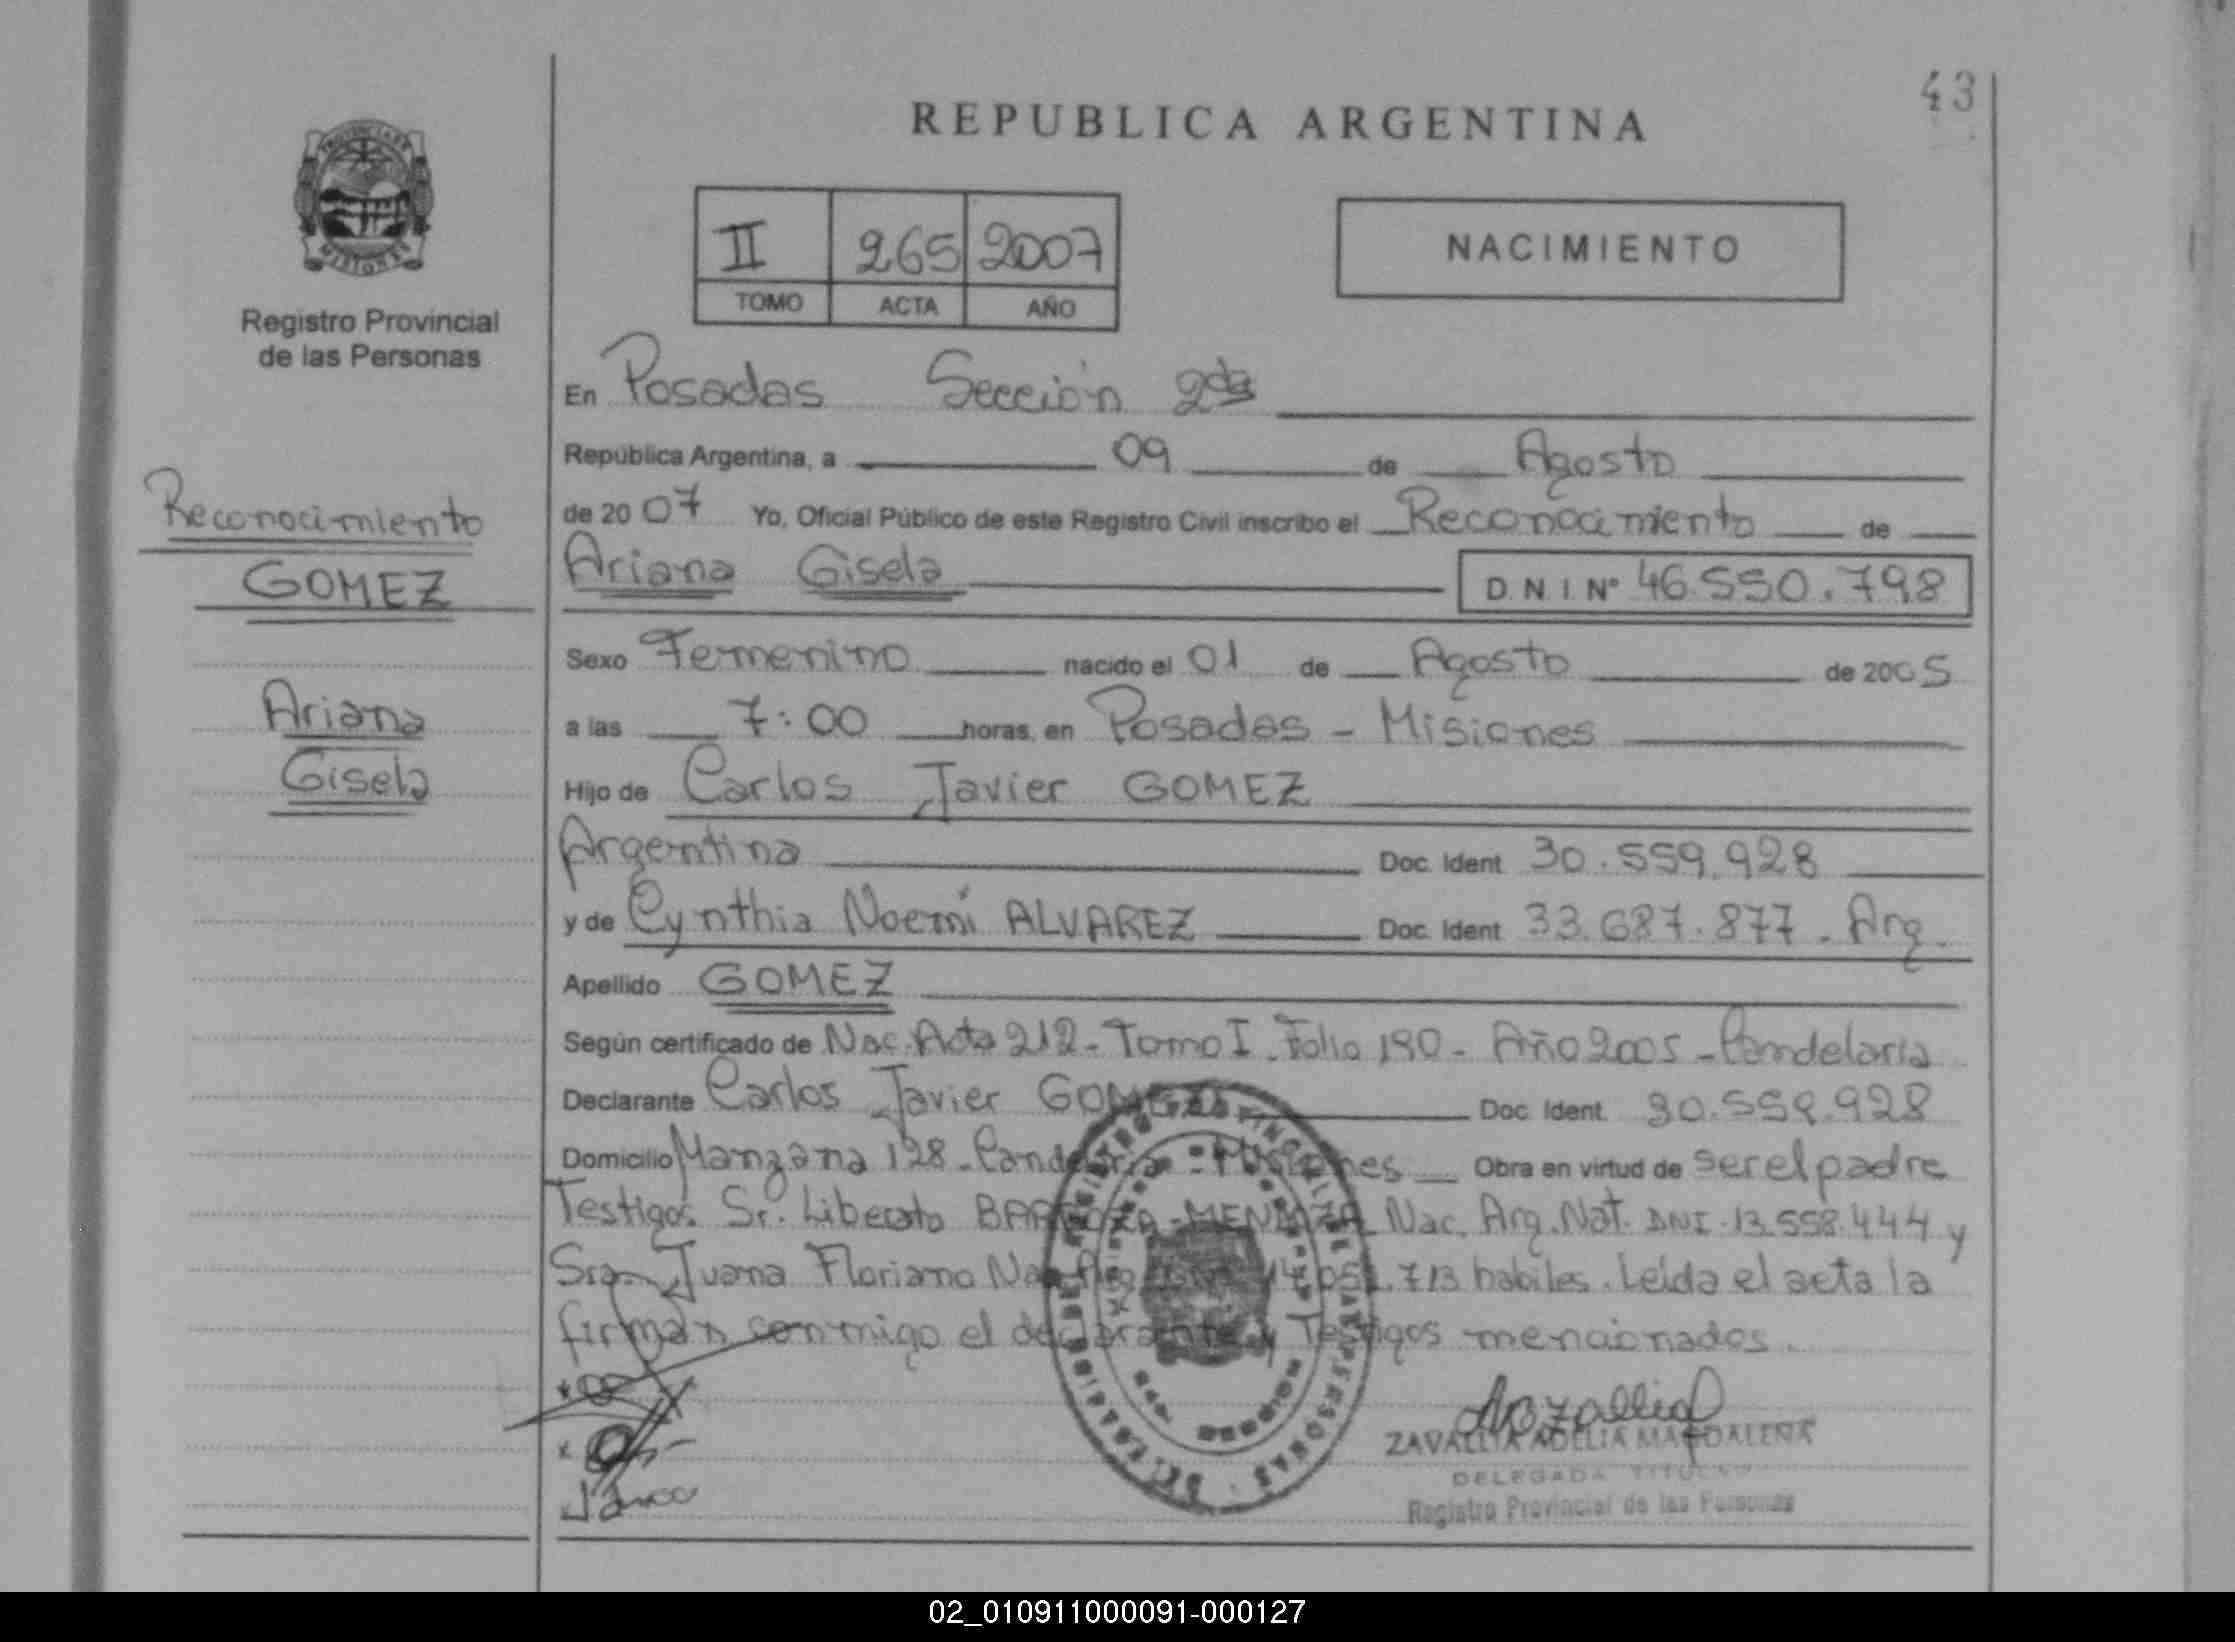 43
REPUBLICA ARGENTINA
PROVINCIA DE
MISIONES
II 265 2007
TOMO ACTA AÑO
NACIMIENTO
Registro Provincial
de las Personas
Reconocimiento
GOMEZ
Ariana
Gisela
En Posadas Sección 2da
República Argentina, a 09 de Agosto
de 2007 Yo, Oficial Público de este Registro Civil inscribo el Reconocimiento de
Ariana Gisela D N I Nº 46.550.798
Sexo Femenino nacido el 01 de Agosto de 2005
a las 7:00 horas, en Posadas - Misiones
Hijo de Carlos Javier GOMEZ
Argentina Doc. Ident. 30.559.928
y de Cynthia Noemí ALVAREZ Doc. Ident. 33.687.877 - Arg.
Apellido GOMEZ
Según certificado de Nac. Acta 212 - Tomo I - Folio 190 - Año 2005 - Candelaria
Declarante Carlos Javier GOMEZ Doc. Ident. 30.559.928
Domicilio Manzana 128 - Candelaria - Misiones Obra en virtud de ser el padre
Testigos Sr. Liberato MENDOZA Nac. Arg. Nat. DNI 13.558.444 y
Sra. Juana Floriano Nac. Arg. 713 habiles. Leída el acta la
firman conmigo el declarante y Testigos mencionados.
ZAVALLIA ADELIA MAGDALENA
DELEGADA TITULAR
Registro Provincial de las Personas
02_010911000091-000127